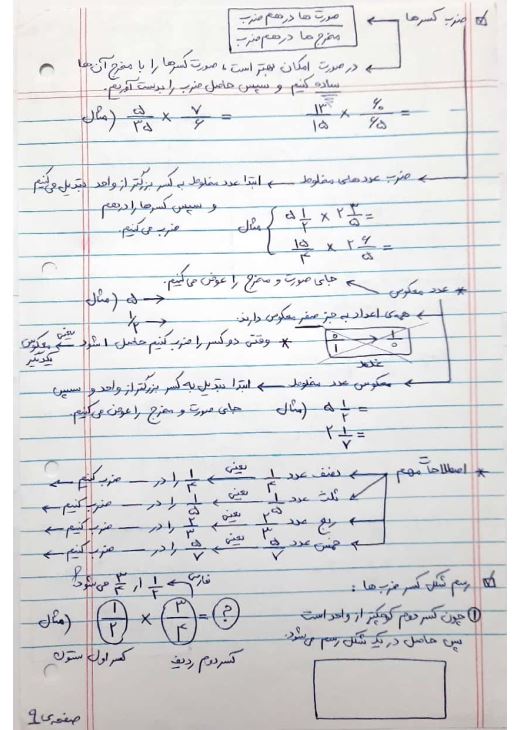 ضرب کسرها ← صورت ها در هم ضرب
مخرج ها در هم ضرب
← در صورت امکان بهتر است ، صورت کسرها را با مخرج آن ها
ساده کنیم و سپس حاصل ضرب را بدست آوریم.
مثال) ۵/۳۵ × ۷/۶ =
۱۳/۱۵ × ۶۰/۶۵ =
ضرب عددهای مخلوط ← ابتدا عدد مخلوط به کسر بزرگتر از واحد تبدیل می‌کنیم
و سپس کسرها را در هم
ضرب می‌کنیم.
مثال
۵ ۱/۲ × ۲ ۳/۵ =
۱۵/۴ × ۲ ۶/۵ =
* عدد معکوس ← جای صورت و مخرج را عوض می‌کنیم.
مثال) ۵ →
۱/۲ →
← همه‌ی اعداد به جز صفر معکوس دارند.
۰/۱ → ۱/۰
* وقتی دو کسر را ضرب کنیم حاصل ۱ شود یعنی ← معکوس
یکدیگر
← معکوس عدد مخلوط ← ابتدا تبدیل به کسر بزرگتر از واحد و سپس
جای صورت و مخرج را عوض می‌کنیم.
مثال) ۵ ۱/۲ =
۲ ۱/۷ =
* اصطلاحات مهم
نصف عدد ۱/۴ یعنی ← ۱/۴ را در — ضرب کنیم ←
ثلث عدد ۱/۵ یعنی ← ۱/۵ را در — ضرب کنیم ←
ربع عدد ۲/۳ یعنی ← ۲/۳ را در — ضرب کنیم ←
خمس عدد ۵/۷ یعنی ← ۵/۷ را در — ضرب کنیم ←
رسم شکل کسر ضرب ها :
فارسی ← ۱/۲ از ۳/۴ می‌شود؟
① چون کسر دوم کوچکتر از واحد است
پس حاصل در یک شکل رسم می‌شود.
مثال) ۱/۲ × ۳/۴ = ?
کسر اول ستون
کسر دوم ردیف
صفحه‌ی ۹